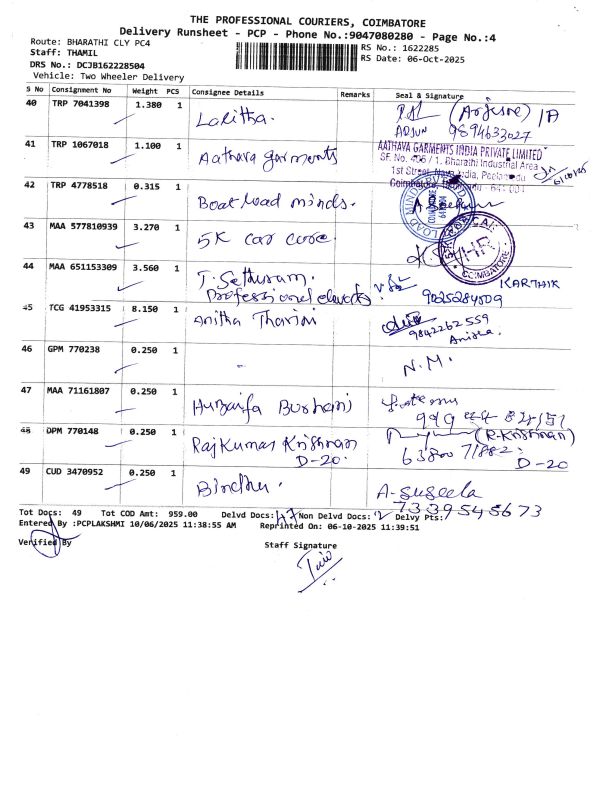 THE PROFESSIONAL COURIERS, COIMBATORE
Delivery Runsheet - PCP - Phone No.:9047080280 - Page No.:4
Route: BHARATHI CLY PC4
RS No.: 1622285
Staff: THAMIL
RS Date: 06-Oct-2025
DRS No.: DCJB162228504
Vehicle: Two Wheeler Delivery
S No Consignment No Weight PCS Consignee Details Remarks Seal & Signature
40 TRP 7041398 1.380 1 Lalitha. (Arjune)
ARJUN 9894633027
41 TRP 1067018 1.100 1 Aathava garments
AATHAVA GARMENTS INDIA PRIVATE LIMITED
SF. No. 406 / 1, Bharathi Industrial Area
1st Street, Nava India, Peelamedu
Coimbatore, 641 001
42 TRP 4778518 0.315 1 Boat load minds.
43 MAA 577810939 3.270 1 5K car care.
HR
COIMBATORE
44 MAA 651153309 3.560 1 T. Sethuram.
Professional KARTHIK
9025284509
45 TCG 41953315 8.150 1 Anitha Tharini
9842262559
Anitha.
46 GPM 770238 0.250 1 - N.M.
47 MAA 71161807 0.250 1 Huzaifa Burhani
48 DPM 770148 0.250 1 Rajkumar Krishnan (R.Krishnan)
D-20.
D-20
49 CUD 3470952 0.250 1 Bindhu. A-Suseela
7339545673
Tot Docs: 49 Tot COD Amt: 959.00 Delvd Docs: 47 Non Delvd Docs: 2 Delvy Pts:
Entered By :PCPLAKSHMI 10/06/2025 11:38:55 AM Reprinted On: 06-10-2025 11:39:51
Verified By
Staff Signature